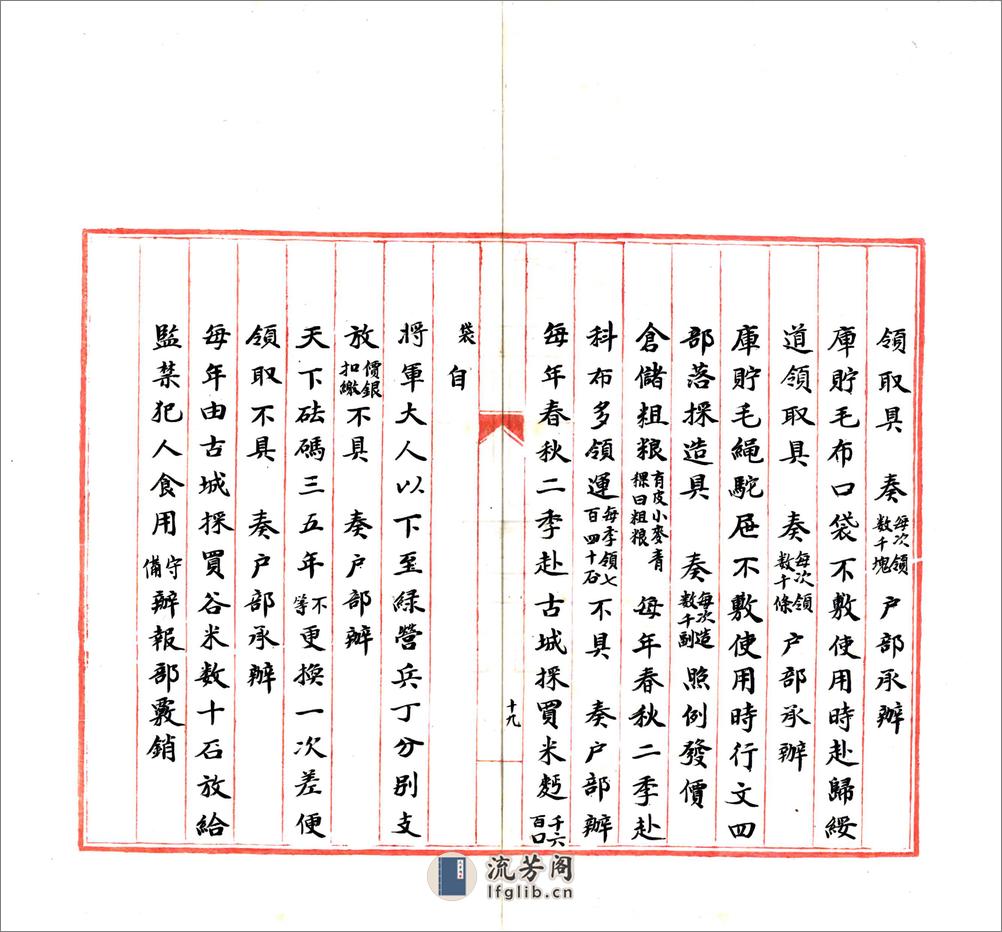 領取具　奏每次領數千塊戶部承辦
庫貯毛布口袋不敷使用時赴歸綏
道領取具　奏每次領數十條戶部承辦
庫貯毛繩駝屉不敷使用時行文四
部落採造具　奏每次造數千副照例發價
倉儲粗粮有皮小麥青稞曰粗粮每年春秋二季赴
科布多領運每季領七百四十石不具　奏戶部辦
每年春秋二季赴古城採買米麪千六百口
袋自
十九
將軍大人以下至綠營兵丁分別支
放價銀扣繳不具　奏戶部辦
天下砝碼三五年不等更換一次差便
領取不具　奏戶部承辦
每年由古城採買谷米数十石放給
監禁犯人食用守備辦報部覈銷
流芳阁
lfglib.cn